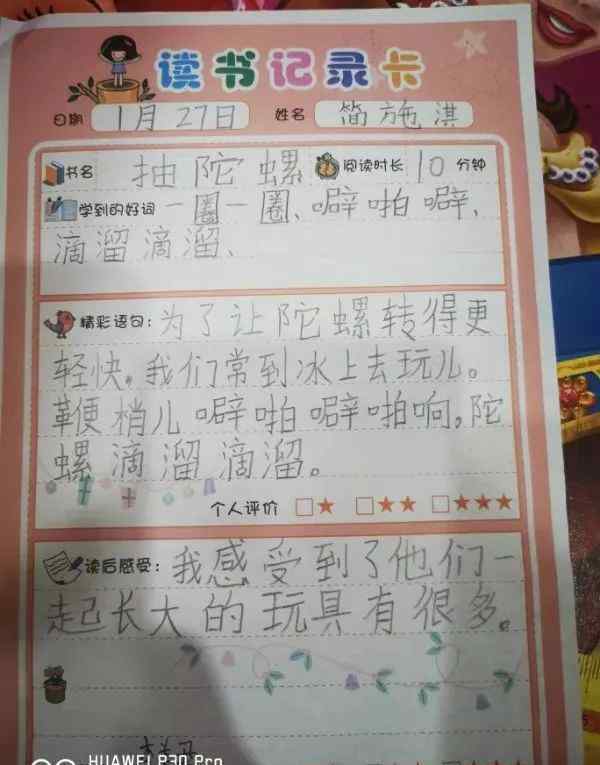 读书记录卡
日期 1月27日 姓名 简施淇
书名 抽陀螺 阅读时长 10 分钟
学到的好词 一圈一圈、噼啪噼、
滴溜滴溜、
精彩语句：为了让陀螺转得更
轻快，我们常到冰上去玩儿。
鞭梢儿噼啪噼啪响，陀
螺滴溜滴溜。
个人评价 □★ □★★ □★★★
读后感受：我感受到了他们一
起长大的玩具有很多。
HUAWEI P30 Pro